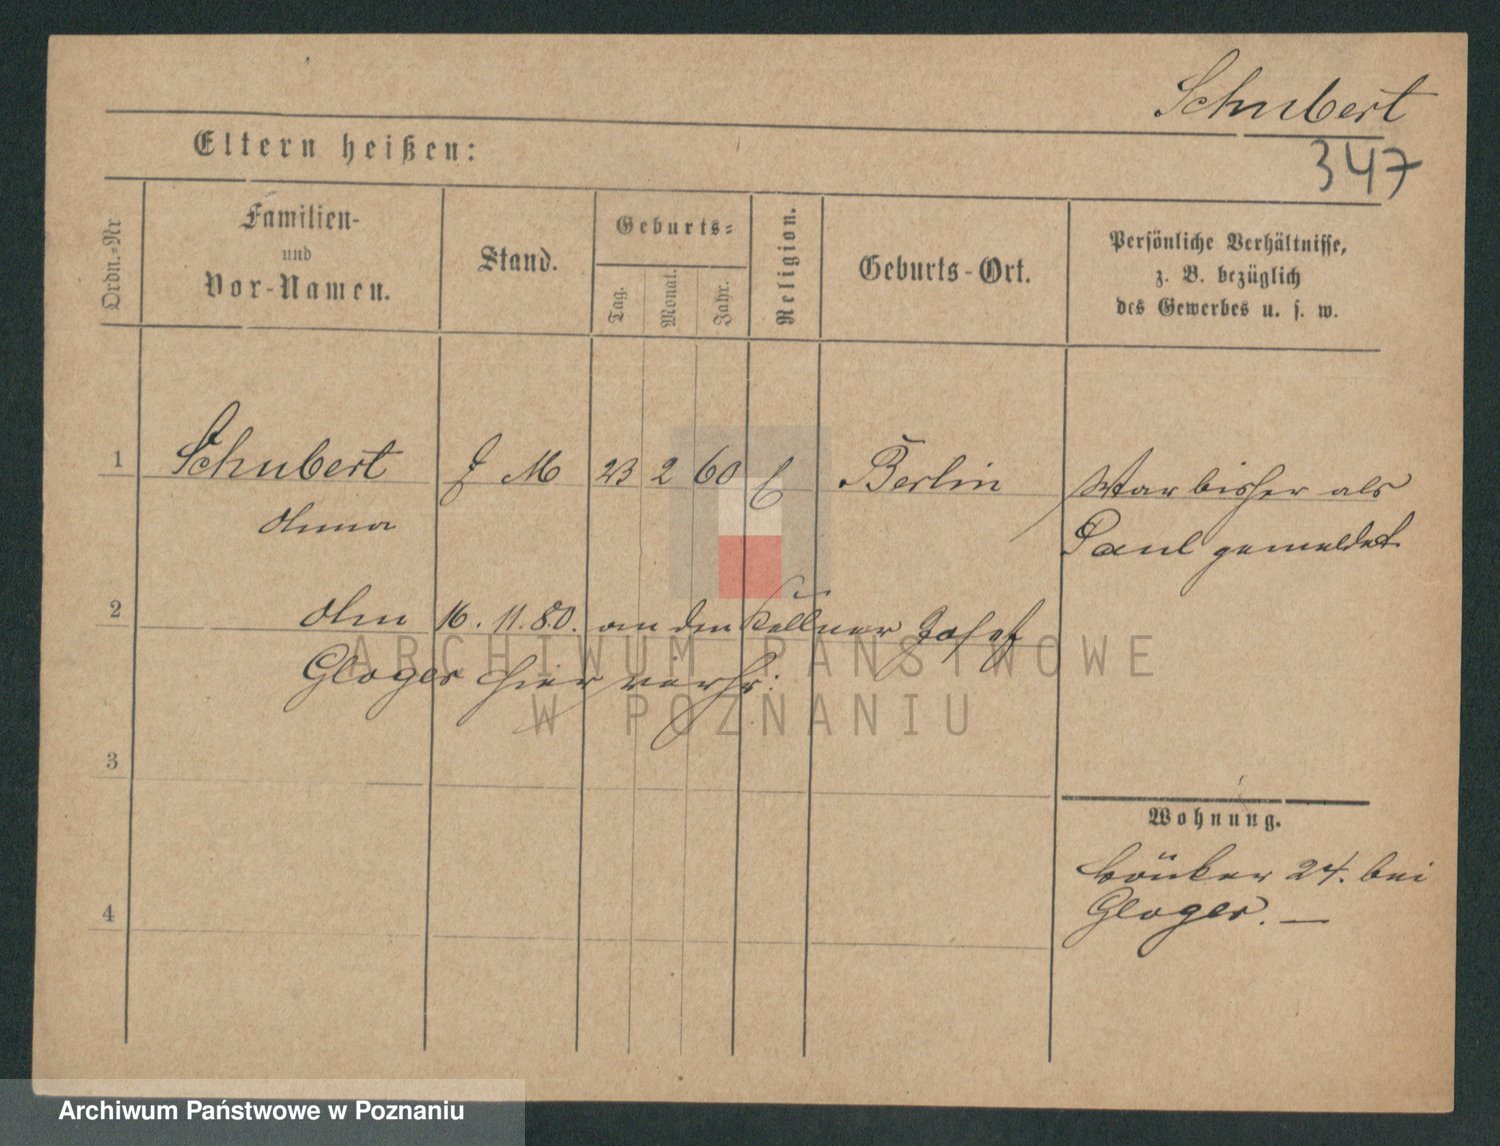 Schubert
347
Eltern heißen:
Ordn.-Nr
Familien-
und
Vor-Namen.
Stand.
Geburts-
Tag.
Monat.
Jahr.
Religion.
Geburts-Ort.
Persönliche Verhältnisse,
z. B. bezüglich
des Gewerbes u. s. w.
1 Schubert M 23 2 60 Berlin War bisher als
Anna Paul gemeldet
2 Am 16. 11. 80. an den Kellner Josef
Gloger hier verh:
3
Wohnung.
24. bei
Gloger. —
4
ARCHIWUM PAŃSTWOWE
W POZNANIU
Archiwum Państwowe w Poznaniu